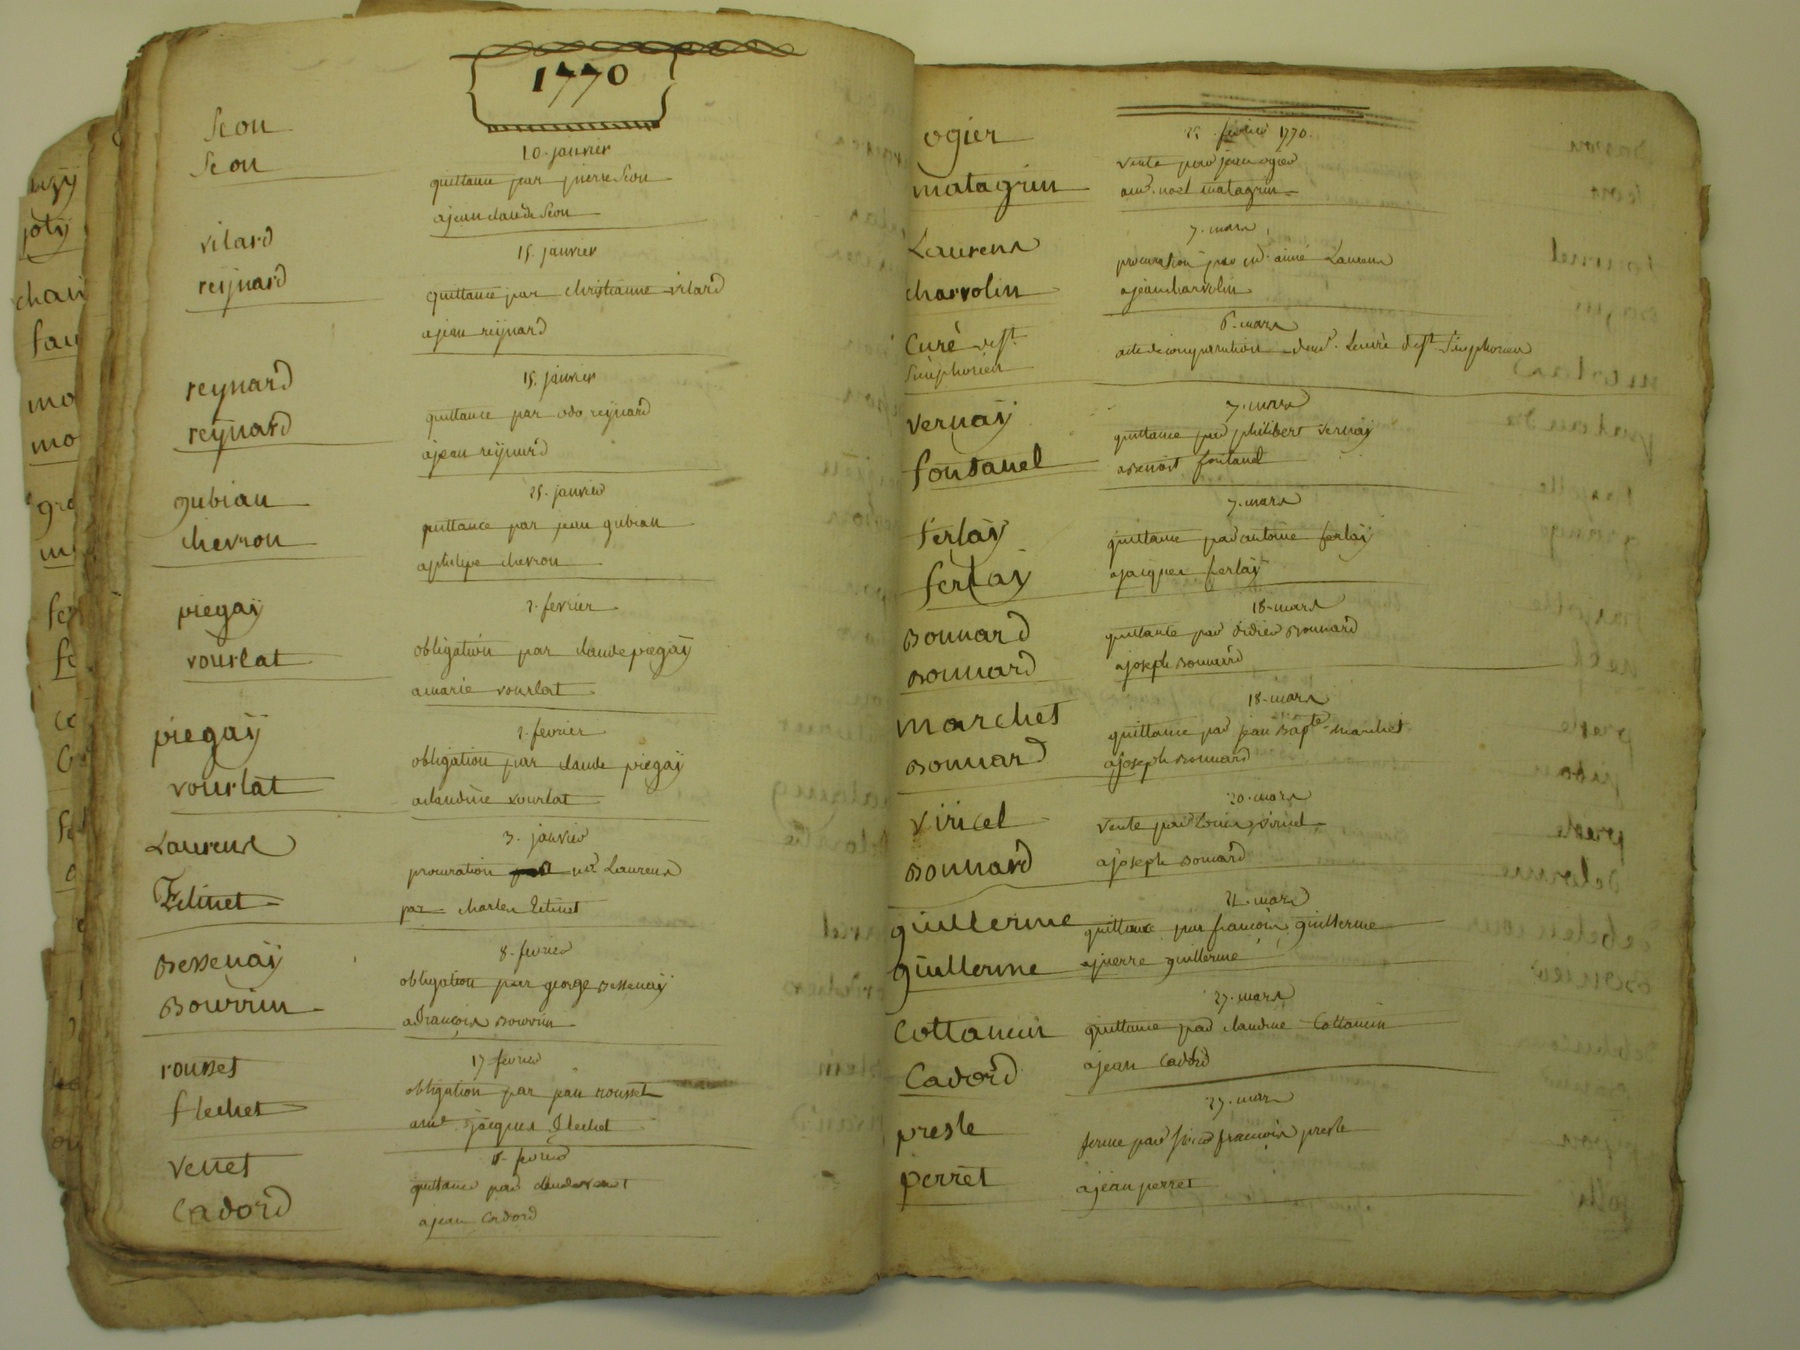 1770
Seon
Seon
10. janvier
quittance par pierre Seon
a jean claude Seon
vilard
reynard
15. janvier
quittance par christianne vilard
a jean reynard
reynard
reynard
15. janvier
quittance par odo reynard
a jean reynard
gubian
chevron
25. janvier
quittance par jean gubian
a philipe chevron
piegaÿ
vourlat
2. fevrier
obligation par claude piegaÿ
a marie vourlat
piegaÿ
vourlat
2. fevrier
obligation par claude piegaÿ
a claudine vourlat
Laurens
Zelinet
3. janvier
procuration Laurens
par charles Zelinet
Bessenaÿ
Bourrin
8. fevrier
obligation par george Bessenaÿ
a françois Bourrin
rousset
flechet
17 fevrier
obligation par jean rousset
jacques flechet
venet
Cadord
fevrier
quittance par claude venet
a jean Cadord
ogier
matagrin
fevrier 1770.
vente par jean ogier
noel matagrin
Laurens
charvolin
7. mars
procuration par aimé Laurens
a jean charvolin
Curé de st.
Simphorien
6. mars
acte de comparution Curé de st. Simphorien
vernaÿ
fontanel
7. mars
quittance par philibert vernaÿ
a Benoist fontanel
ferlaÿ
ferlaÿ
7. mars
quittance par antoine ferlaÿ
a jacques ferlaÿ
Bonnard
Bonnard
18. mars
quittante par didier Bonnard
a joseph Bonnard
marchet
Bonnard
18. mars
quittance par jean Bapte. marchet
a joseph Bonnard
viricel
Bonnard
20. mars
vente par Louis viricel
a joseph Bonnard
guillerme
guillerme
21. mars
quittance par françois guillerme
a pierre guillerme
Cottancin
Cadord
27. mars
quittance par claudine Cottancin
a jean Cadord
presle
perret
29. mars
ferme par françois presle
a jean perret